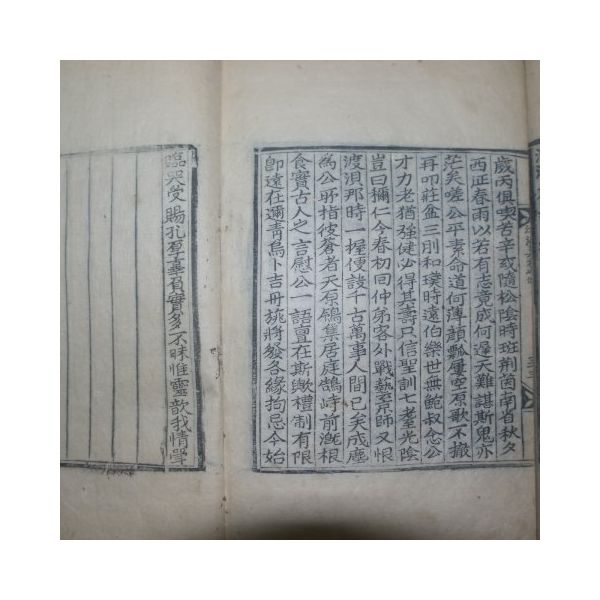 歲丙俱喫苦辛或隨松陰時班荆茵南省秋夕
西疋春雨以若有志竟成何遑天難諶斯鬼亦
茫矣嗟公平素命道何薄顔瓢屢空原歌不撤
再叩莊盆三刖和璞時遠伯樂世無鮑叔念公
才力老猶強健必得其壽只信聖訓七耋光陰
豈曰摛仁今春初回仲弟客外戰藝京師又恨
渡浿那時一握便設千古萬事人間已矣成塵
為公所指彼蒼者天原鴒集居庭鵠峙前漑根
食實古人之言慰公一語亶在斯歟禮制有限
卽遠在邇靑烏卜吉丹旐將發各緣拘忌今始
臨哭受賜孔至辜負實多不昧惟靈歆我情斝